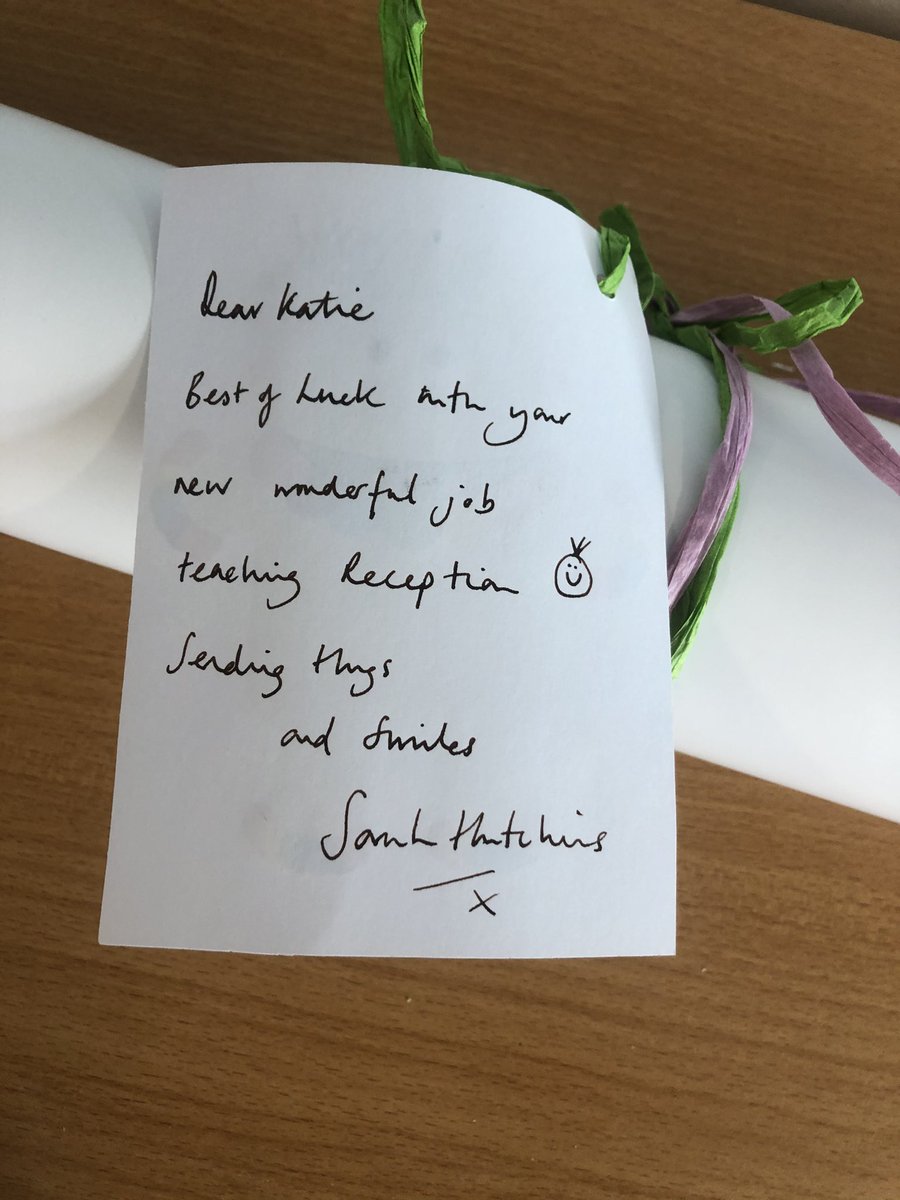 Dear Katie
Best of Luck with your
new wonderful job
teaching Reception
Sending Hugs
and Smiles
Sarah Hutchins
x